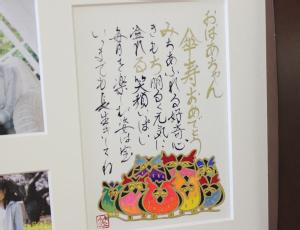 おばあちゃん
傘寿おめでとう
みちあふれる好奇心
きもち明るく元気だ
溢れる笑顔しばし
毎日を楽しむ姿は宝
いつまでも長生きしてね